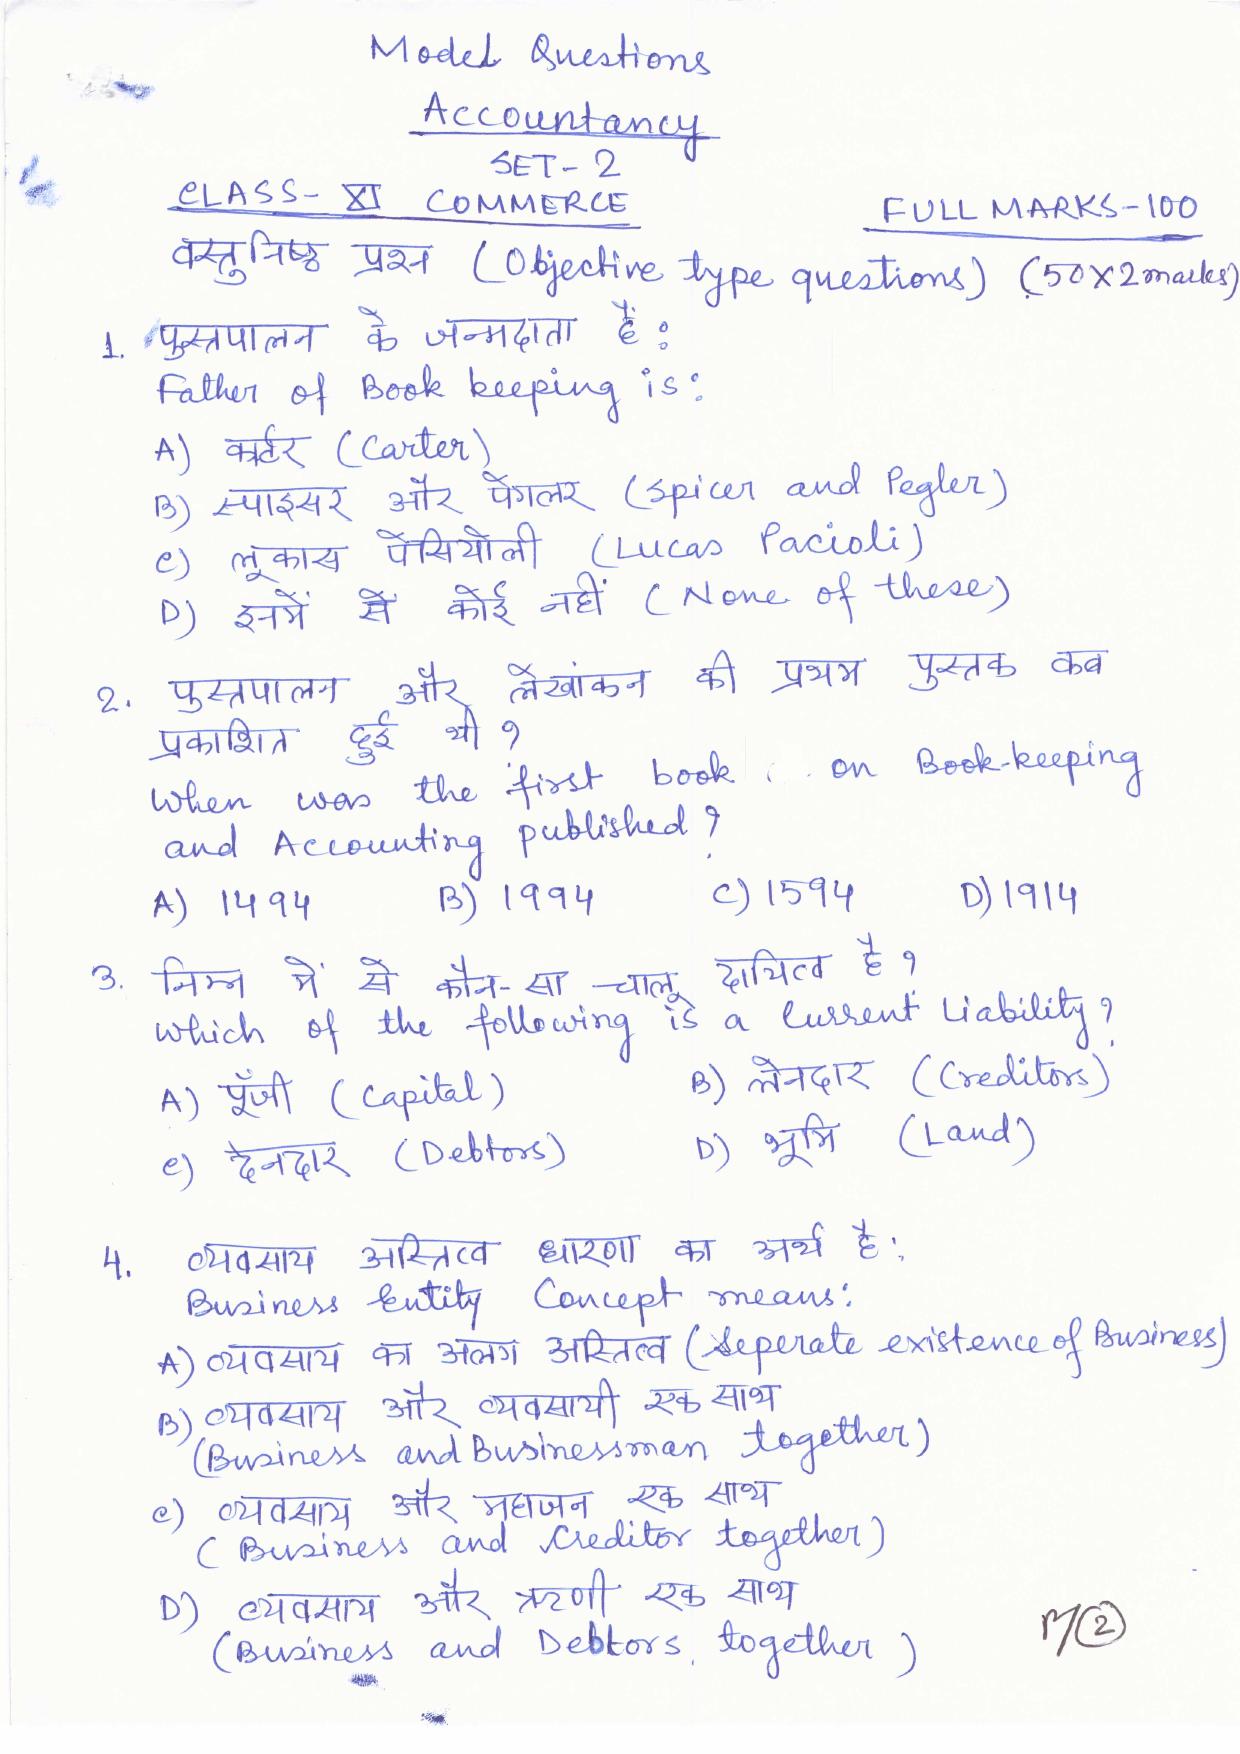 Model Questions
Accountancy
SET-2
CLASS-XI COMMERCE
FULL MARKS-100
वस्तुनिष्ठ प्रश्न (Objective type questions) (50X2marks)
1. पुस्तपालन के जन्मदाता हैं:
Father of Book keeping is:
A) कार्टर (Carter)
B) स्पाइसर और पेगलर (Spicer and Pegler)
C) लूकास पेसियोली (Lucas Pacioli)
D) इनमें से कोई नहीं (None of these)
2. पुस्तपालन और लेखांकन की प्रथम पुस्तक कब
प्रकाशित हुई थी ?
When was the first book on Book-keeping
and Accounting published?
A) 1494 B) 1994 C) 1594 D) 1914
3. निम्न में से कौन-सा चालू दायित्व है ?
Which of the following is a Current Liability?
A) पूँजी (Capital) B) लेनदार (Creditors)
C) देनदार (Debtors) D) भूमि (Land)
4. व्यवसाय अस्तित्व धारणा का अर्थ है:
Business Entity Concept means:
A) व्यवसाय का अलग अस्तित्व (Seperate existence of Business)
B) व्यवसाय और व्यवसायी एक साथ
(Business and Businessman together)
C) व्यवसाय और महाजन एक साथ
(Business and Creditor together)
D) व्यवसाय और ऋणी एक साथ
(Business and Debtors together)